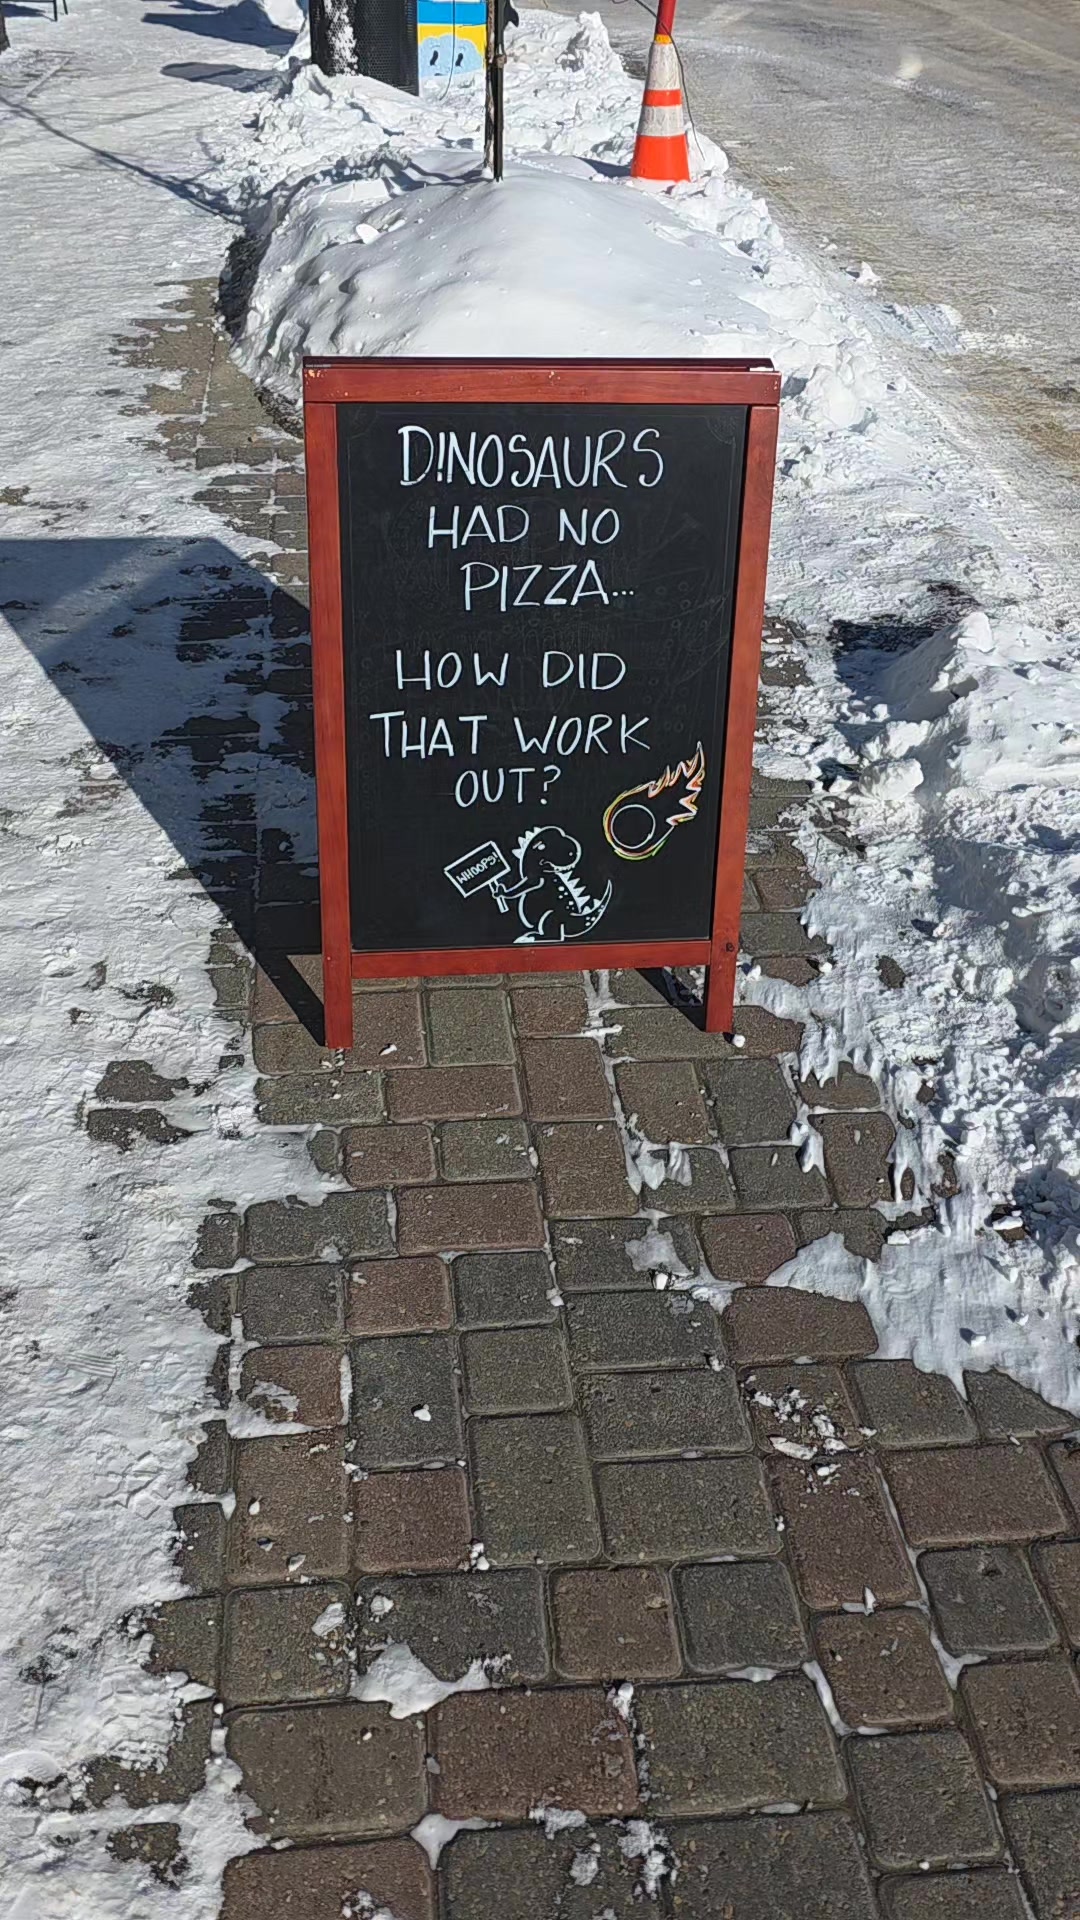 DINOSAURS
HAD NO
PIZZA...
HOW DID
THAT WORK
OUT?
WHOOPS!